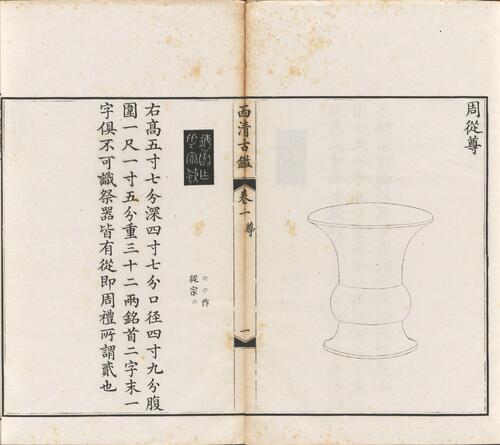 周從尊
西清古鑑
卷一 尊
一
○○作
從宗○
右髙五寸七分深四寸七分口径四寸九分腹
圍一尺一寸五分重三十二兩銘首二字末一
字俱不可識祭器皆有從即周禮所謂貳也